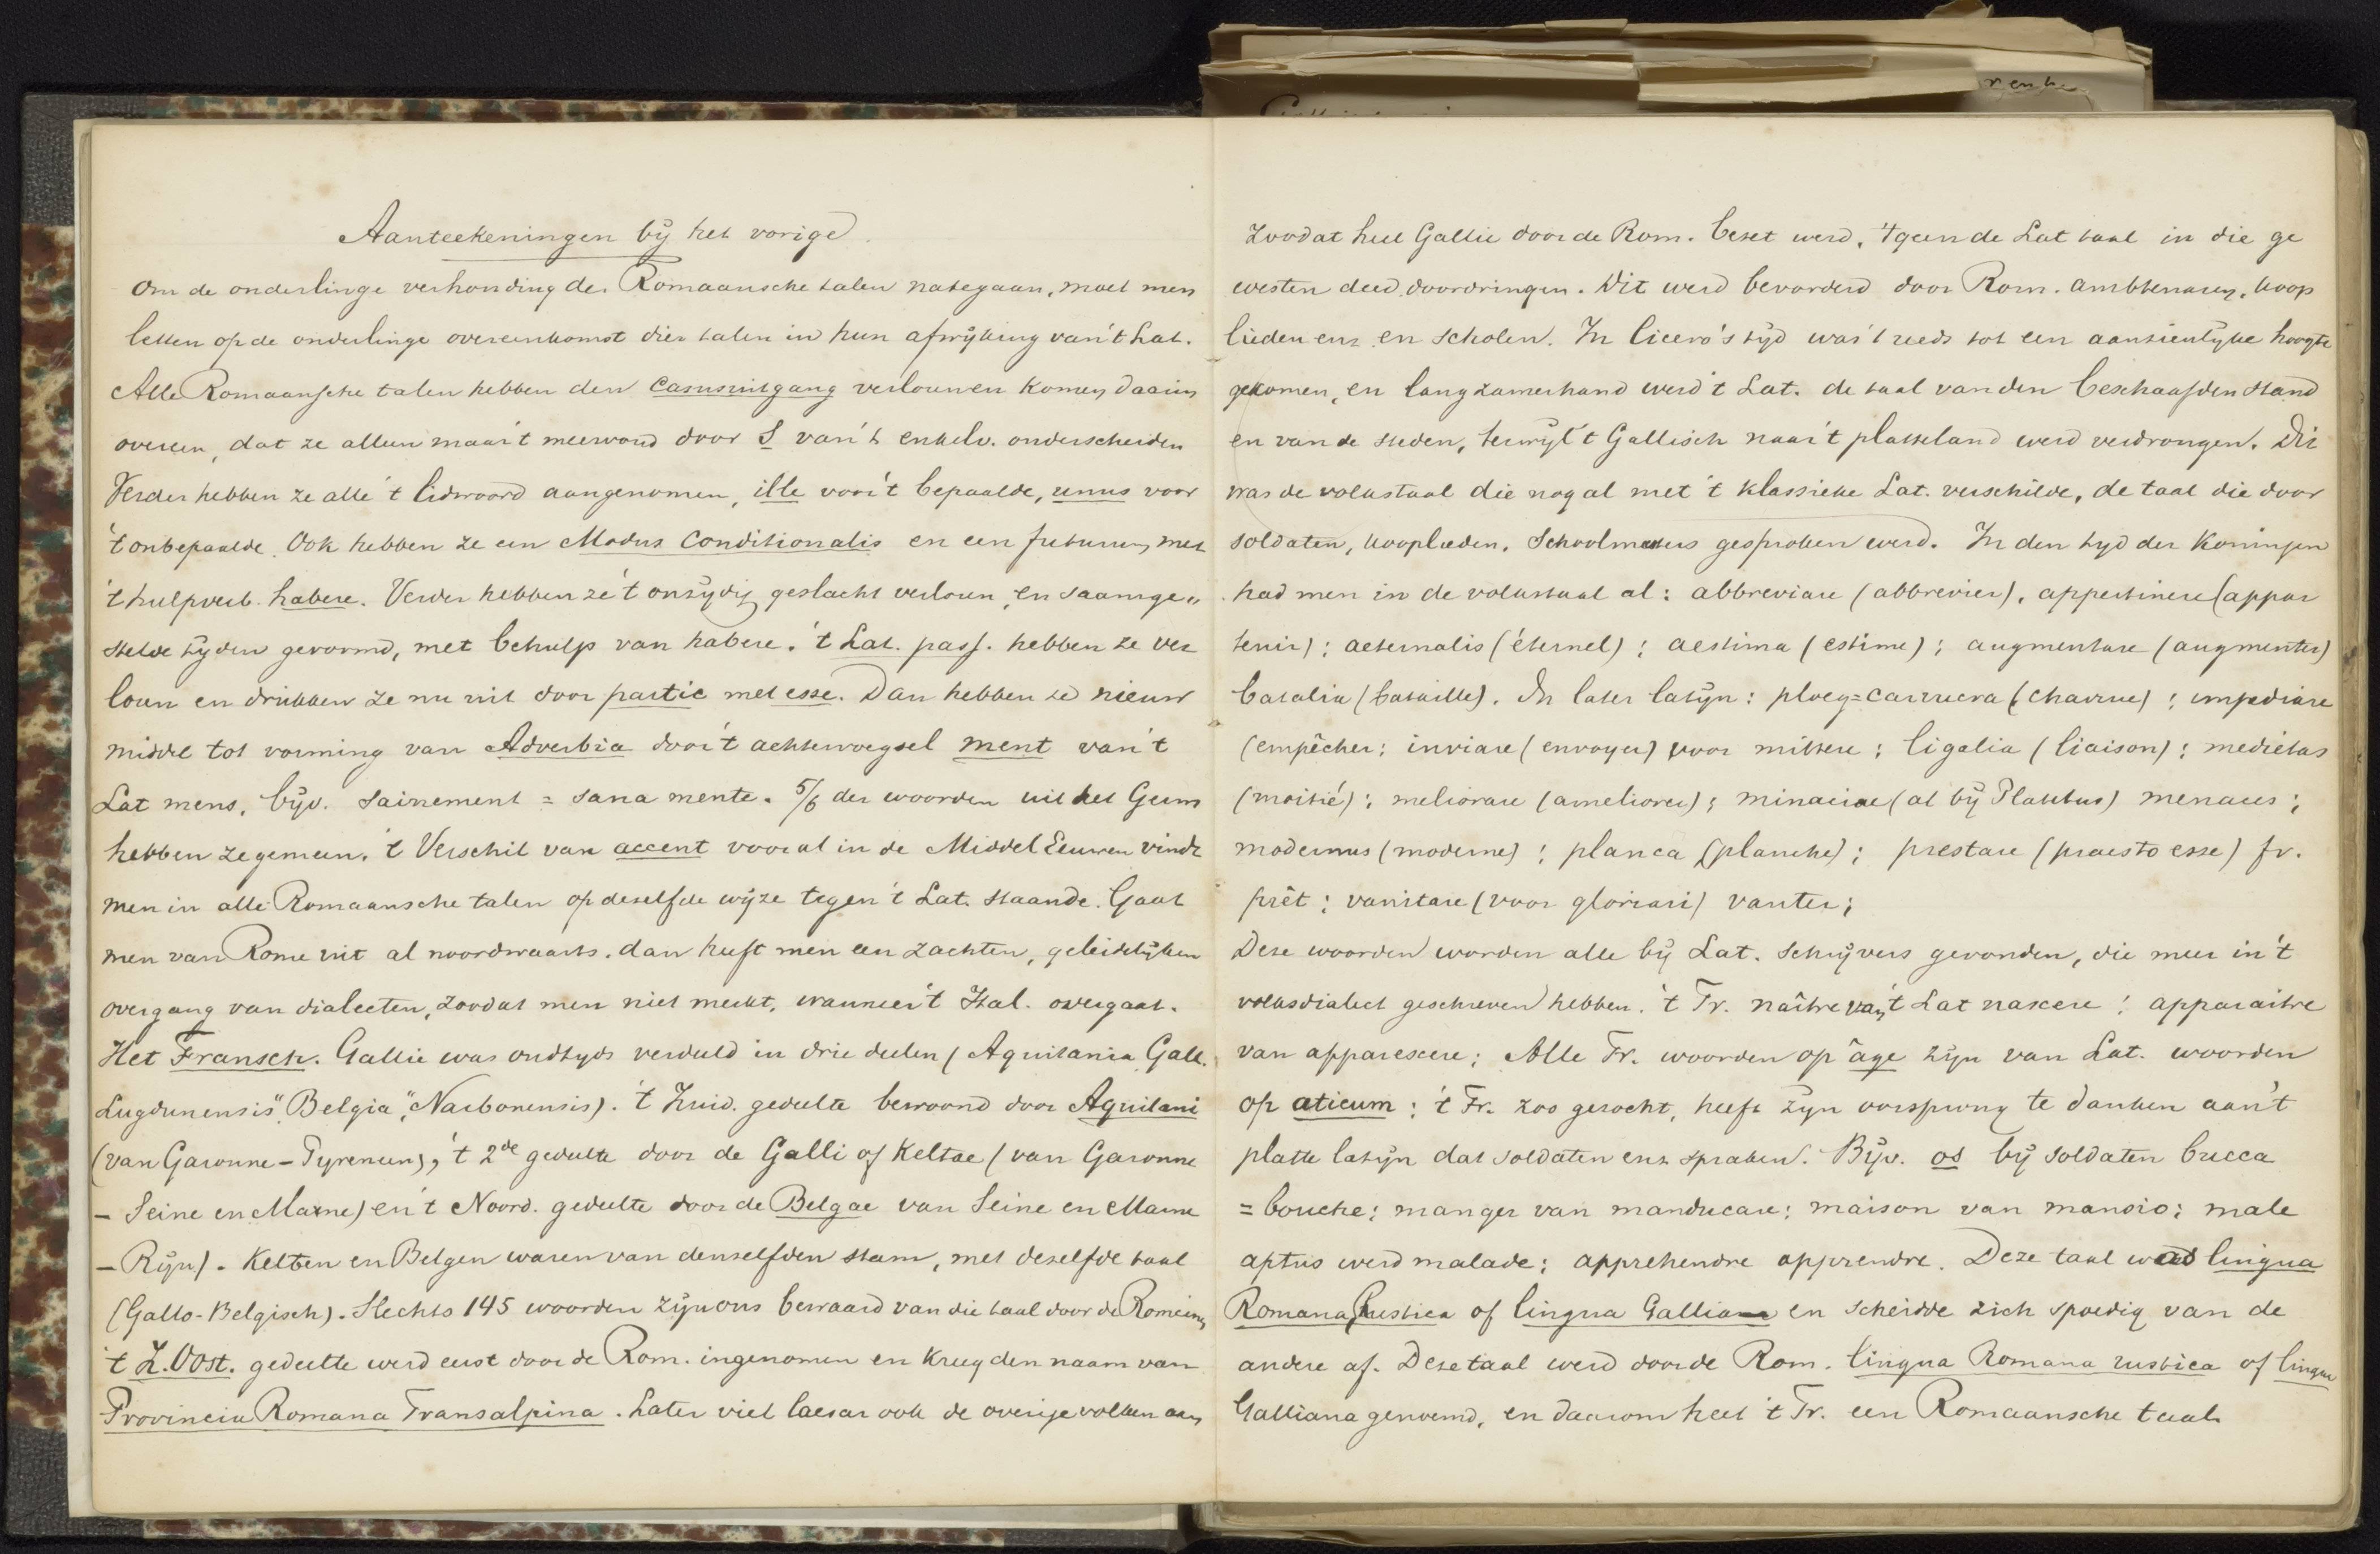 Aanteekeningen bij het vorige.
Om de onderlinge verhouding der Romaansche talen nategaan, moet men
letten op de onderlinge overeenkomst dier talen in hun afwijking van 't Lat.
Alle Romaansche talen hebben den casusuitgang verlouwen komen daarin
overeen, dat ze alleen maar 't meervoud door S van 't enkelv. onderscheiden
Verder hebben ze alle 't lidwoord aangenomen, ille voor 't bepaalde, unus voor
't onbepaalde. Ook hebben ze een Modus Conditionalis en een futurum met
't hulpverb. habere. Verder hebben ze 't onzijdig geslacht verloren, en saamge„
stelde tijden gevormd, met behulp van habere. 't Lat. pass. hebben ze ver
loren en drukken ze nu uit door partic met esse. Dan hebben ze nieuw
middel tot vorming van Adverbia door 't achtervoegsel ment van 't
Lat mens, bijv. sainement = sana mente. 5/6 der woorden uit het Germ
hebben ze gemeen. 't Verschil van accent vooral in de Middel Eeuwen vindt
men in alle Romaansche talen op dezelfde wijze tegen 't Lat. staande. Gaat
men van Rome uit al noordwaarts, dan heeft men een zachten, geleidelijken
overgang van dialecten, zoodat men niet merkt, wanneer 't Ital. overgaat.
Het Fransch. Gallie was oudtyds verdeeld in drie deelen (Aquitania Gall.
Lugdunensis" Belgia", Narbonensis). 't Zuid. gedeelte bewoond door Aquitani
(van Garonne - Pyreneen), 't 2de gedeelte door de Galli of Keltae (van Garonne
- Seine en Marne) en 't Noord. gedeelte door de Belgae van Seine en Marne
- Rijn). Kelten en Belgen waren van denzelfden stam, met dezelfde taal
(Gallo-Belgisch). Slechts 145 woorden zijn ons bewaard van die taal door de Romeinen
't Z.Oost. gedeelte werd eerst door de Rom. ingenomen en kreeg den naam van
Provincia Romana Transalpina. Later viel Caesar ook de overige volken aan
Zoodat heel Gallie door de Rom. bezet werd, 'tgeen de Lat taal in die ge
westen deed doordringen. Dit werd bevorderd door Rom. ambtenaren, koop
lieden enz en scholen. In Cicero's tijd was 't reeds tot een aanzienlijke hoogte
gekomen, en langzamerhand werd 't Lat. de taal van den beschaafden stand
en van de steden, terwijl 't Gallisch naar 't platteland werd verdrongen. Dit
was de volkstaal die nogal met 't klassieke Lat. verschilde, de taal die door
soldaten, kooplieden, Schoolmeesters gesproken werd. In den tyd der Koningen
had men in de volkstaal al: abbreviare (abbrevier), appertinere (appar
tenir); aeternalis (éternel); aestima (estime); augmentare (augmenter)
batalia (bataille). In later latijn: ploeg = carruca (charrue); impediare
(empêcher; inviare (envoyer) voor mittere; ligalia (liaison); medietas
(moitié); meliorare (ameliorer); minaciae (al bij Plautus) menaces;
modernus (moderne); planca (planche); prestare (praesto esse) fr.
prêt; vanitare (voor gloriari) vanter;
Deze woorden worden alle bij Lat. schrijvers gevonden, die meer in 't
volksdialect geschreven hebben. 't Fr. naître van 't Lat nascere; apparaitre
van apparescere; Alle Fr. woorden op âge zijn van Lat. woorden
op aticum; 't Fr. zoo gezocht, heeft zijn oorsprong te danken aan 't
platte latijn dat soldaten enz spraken. Bijv. os bij soldaten bucca
= bouche; manger van manducare; maison van mansio; male
aptus werd malade; apprehendre apprendre. Deze taal werd lingua
Romana Rustica of lingua Galliana en scheidde zich spoedig van de
andere af. Deze taal werd door de Rom. lingua Romana rustica of lingua
Galliana genoemd, en daarom heet 't Fr. een Romaansche taal.